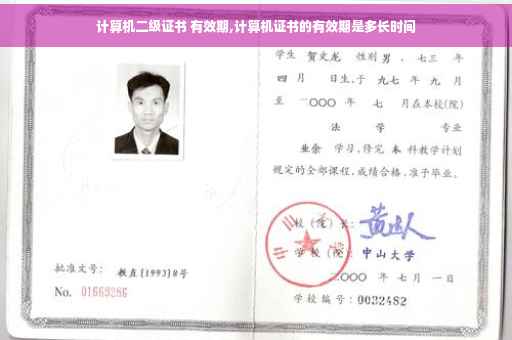 计算机二级证书 有效期,计算机证书的有效期是多长时间
学生 贺文龙 性别 男 、七三 年
四 月 日生,于 九七 年 九 月
至 二〇〇〇 年 七 月在本校(院)
法 学 专业
业余 学习,修完 本 科教学计划
规定的全部课程,成绩合格,准予毕业。
校(院)长:
学校(院): 中山大学
二〇〇〇 年 七 月 一 日
批准文号: 教直[1993]8号
No. 01669286
学校编号: 0032482